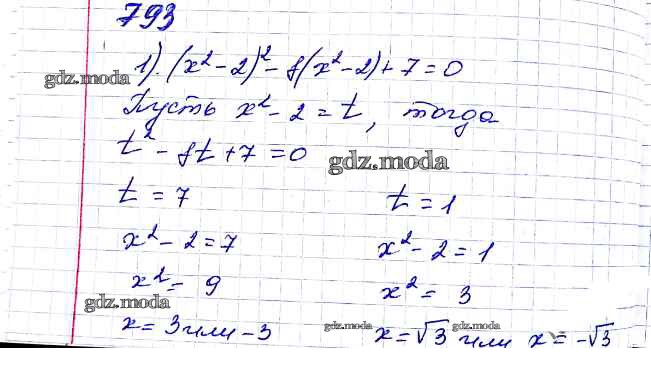 793
1). (x² - 2)² - 8(x² - 2) + 7 = 0
gdz.moda
Пусть x² - 2 = t, тогда
t² - 8t + 7 = 0
gdz.moda
t = 7 t = 1
x² - 2 = 7 x² - 2 = 1
x² = 9 x² = 3
gdz.moda
x = 3 или -3 gdz.moda x = √3 или x = -√3 gdz.moda